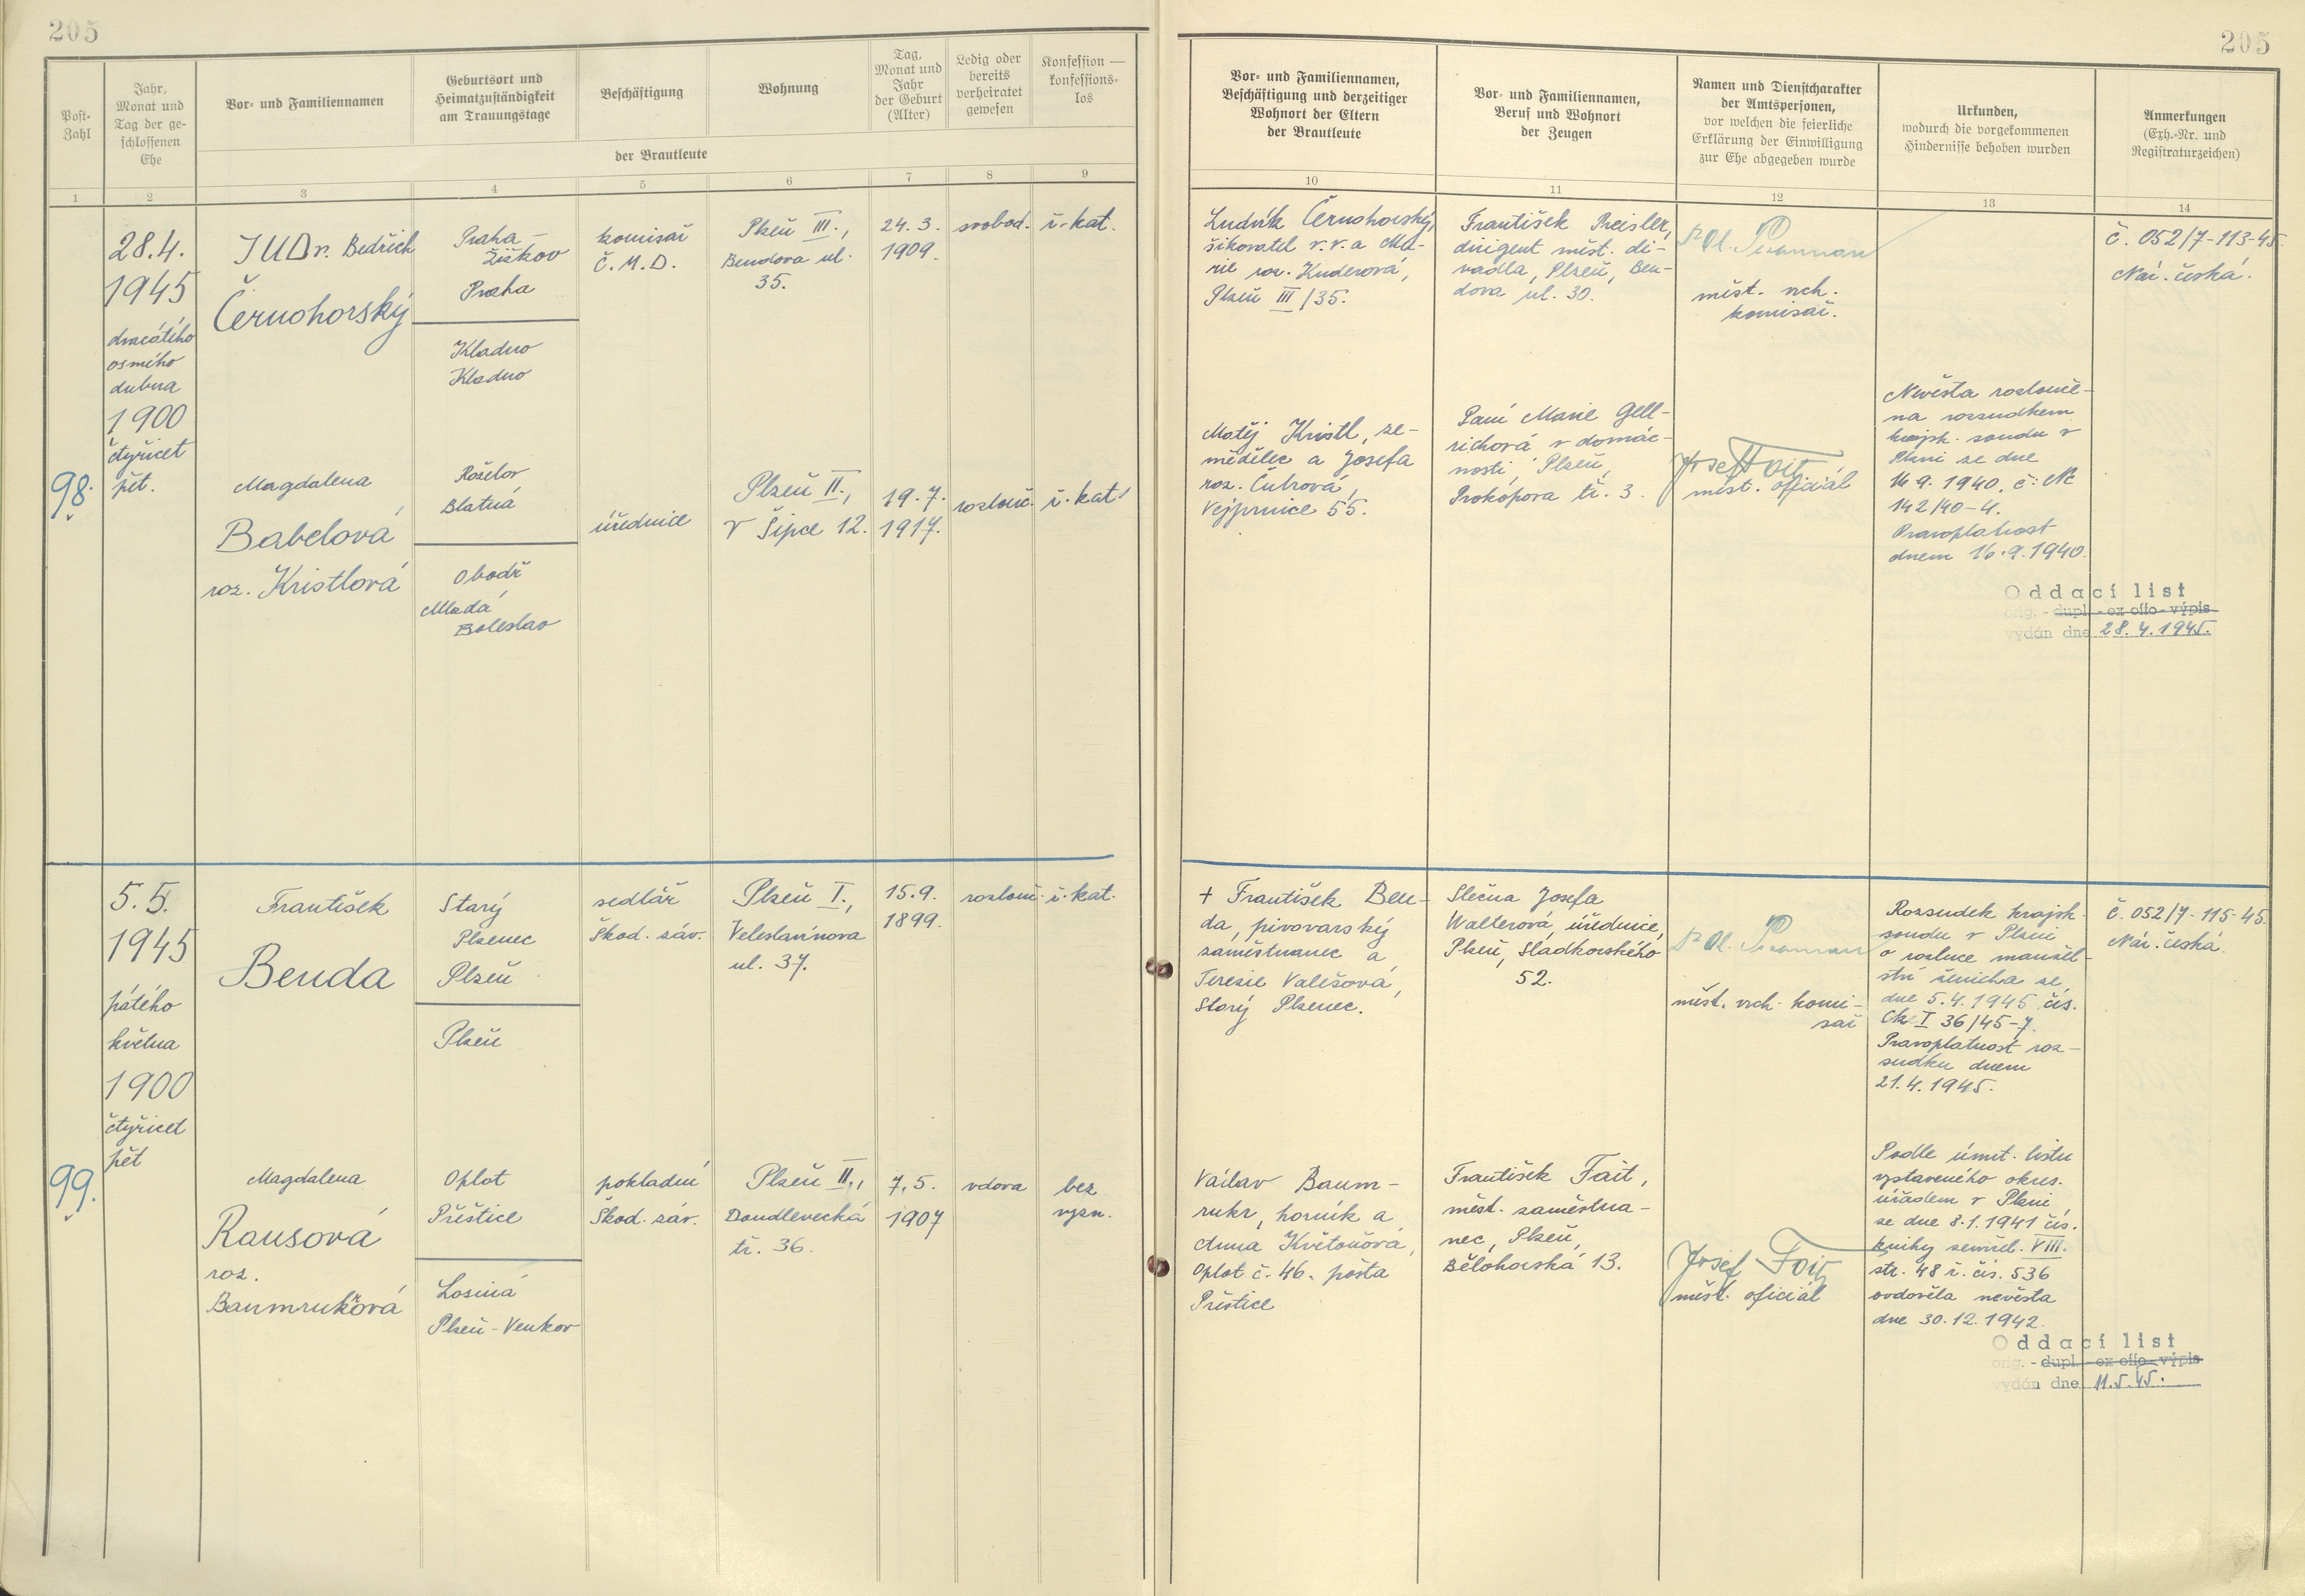 205
205
Post-
Zahl
Jahr,
Monat und
Tag der ge-
schlossenen
Ehe
Vor- und Familiennamen
Geburtsort und
Heimatzuständigkeit
am Trauungstage
Beschäftigung
Wohnung
Tag,
Monat und
Jahr
der Geburt
(Alter)
Ledig oder
bereits
verheiratet
gewesen
Konfession —
konfessions-
los
der Brautleute
Vor- und Familiennamen,
Beschäftigung und derzeitiger
Wohnort der Eltern
der Brautleute
Vor- und Familiennamen,
Beruf und Wohnort
der Zeugen
Namen und Dienstcharakter
der Amtspersonen,
vor welchen die feierliche
Erklärung der Einwilligung
zur Ehe abgegeben wurde
Urkunden,
wodurch die vorgekommenen
Hindernisse behoben wurden
Anmerkungen
(Exh.-Nr. und
Registraturzeichen)
1 2 3 4 5 6 7 8 9 10 11 12 13 14
98.
28.4.
1945
dvacátého
osmého
dubna
1900
čtyřicet
pět.
JUDr. Bedřich
Černohorský
Praha-
Žižkov
Praha
Kladno
Kladno
komisař
Č.M.D.
Plzeň III.,
Bendova ul.
35.
24.3.
1909.
svobod.
ř.-kat.
Ludvík Černohorský,
šikovatel v.v. a Ma-
rie roz. Kuderová,
Plzeň III/35.
František Preisler,
dirigent měst. di-
vadla, Plzeň, Ben-
dova ul. 30.
měst. vrch.
komisař.
č. 052/7-113-45.
Nár. česká.
Magdalena
Babelová
roz. Kristlová
Roželov
Blatná
Obodř
Mladá
Boleslav
úřednice
Plzeň II.,
V Šipce 12.
19.7.
1917.
rozlouč.
ř.kat.
Matěj Kristl, ze-
mědělec a Josefa
roz. Čubrová,
Vejprnice 55.
Paní Marie Gell-
richová v domác-
nosti, Plzeň,
Prokopova tř. 3.
Josef Foit
měst. oficiál
Nevěsta rozlouče-
na rozsudkem
krajsk. soudu v
Plzni ze dne
14.9.1940, č: Nc
142/40-4.
Pravoplatnost
dnem 16.9.1940.
Oddací list
orig. - dupl. - ex offo - výpis
vydán dne 28.4.1945.
99.
5.5.
1945
pátého
května
1900
čtyřicet
pět
František
Benda
Starý
Plzenec
Plzeň
Plzeň
sedlář
Škod. záv.
Plzeň I.,
Veleslavínova
ul. 37.
15.9.
1899.
rozlouč.
ř.kat.
+ František Ben-
da, pivovarský
zaměstnanec a
Terezie Valešová,
Starý Plzenec.
Slečna Josefa
Walterová, úřednice,
Plzeň, Sladkovského
52.
měst. vrch. komi-
sař
Rozsudek krajsk.
soudu v Plzni
o rozluce manžel-
ství ženicha ze
dne 5.4.1945 čís.
Ck I 36/45-7.
Pravoplatnost roz-
sudku dnem
21.4.1945.
č. 052/7-115-45.
Nár. česká
Magdalena
Rausová
roz.
Baumrukrová
Oplot
Přeštice
Losiná
Plzeň-Venkov
pokladní
Škod. záv.
Plzeň II.,
Doudlevecká
tř. 36.
7.5.
1907
vdova
bez
vyzn.
Václav Baum-
rukr, horník a
Anna Květoňová,
Oplot č. 46. pošta
Přeštice
František Fait,
měst. zaměstna-
nec, Plzeň,
Bělohorská 13.
Josef Foit
měst. oficiál
Podle úmrt. listu
vystaveného okres.
úřadem v Plzni,
ze dne 8.1.1941 čís.
knihy zemřel. VIII.
str. 48 ř. čís. 536
ovdověla nevěsta
dne 30.12.1942.
Oddací list
orig. - dupl. - ex offo - výpis
vydán dne 11.5.45.